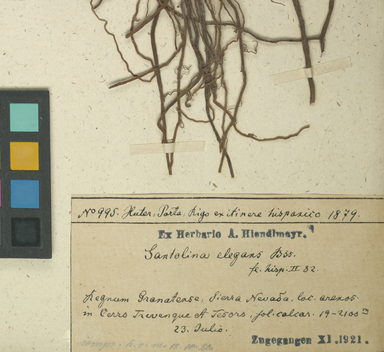 No 995. Huter, Porta, Rigo ex itinere hispanico 1879.
Ex Herbario A. Hiendlmayr.
Santolina elegans Bss.
fl. hisp. II 32.
Regnum Granatense, Sierra Nevada, loc. arenos.
in Cerro Trevenque et Tesoro, sol. calcar. 19-2100
23. Julio.
Zugegangen XI.1921.